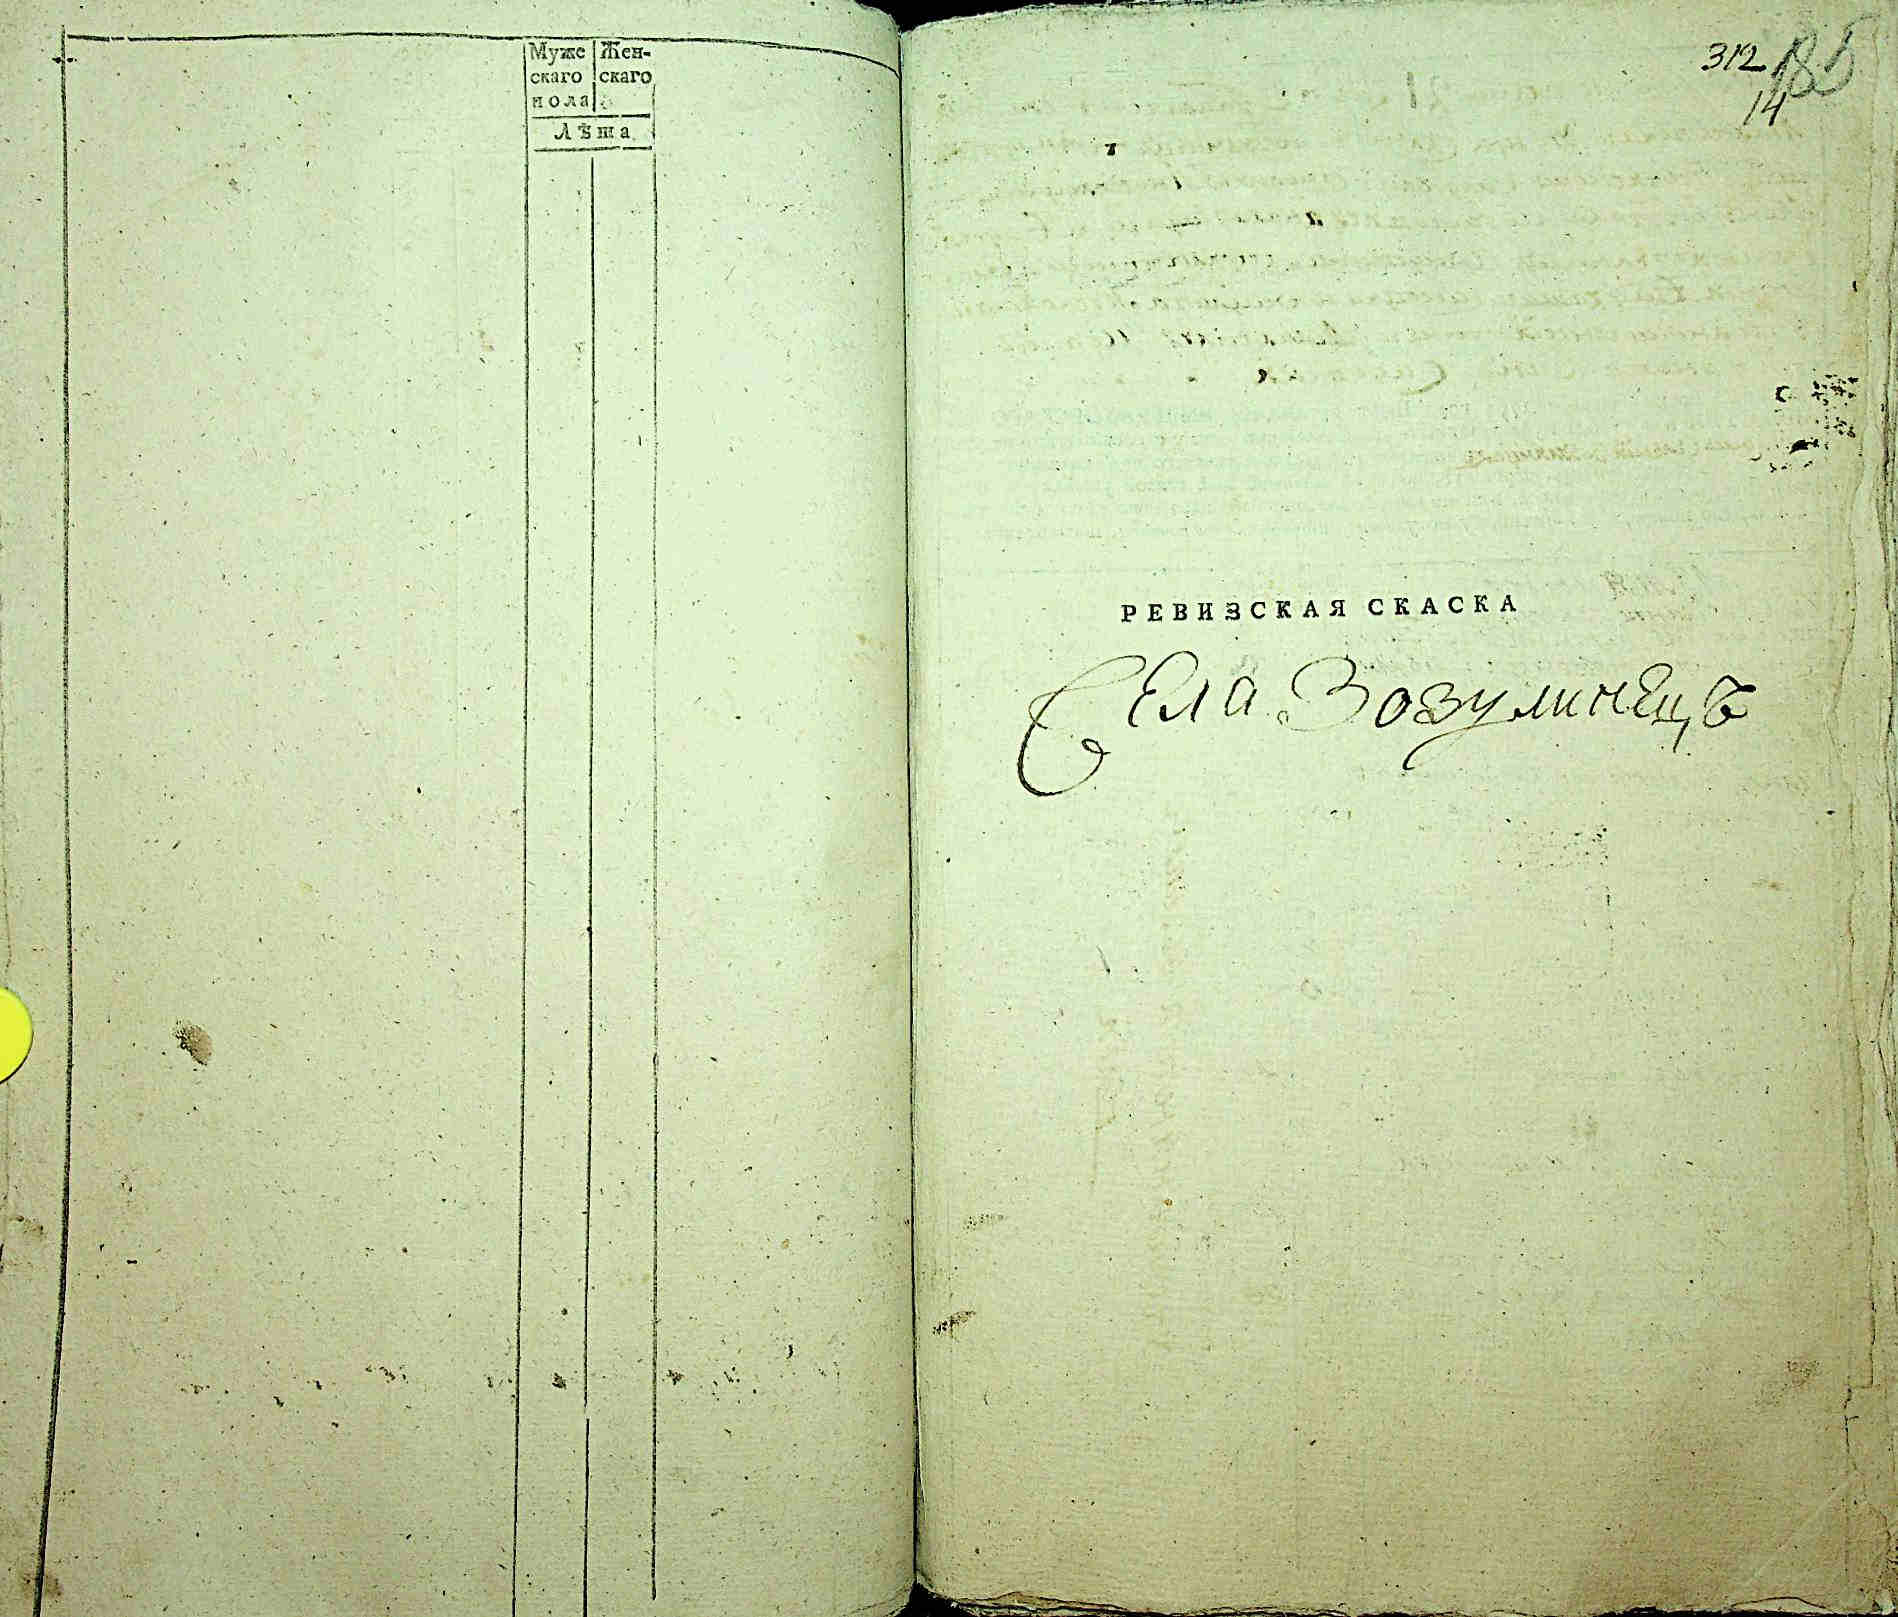 Муже Жен-
скаго скаго
пола
Лѣта
312
185
14
РЕВИЗСКАЯ СКАСКА
Села Зозулинецъ